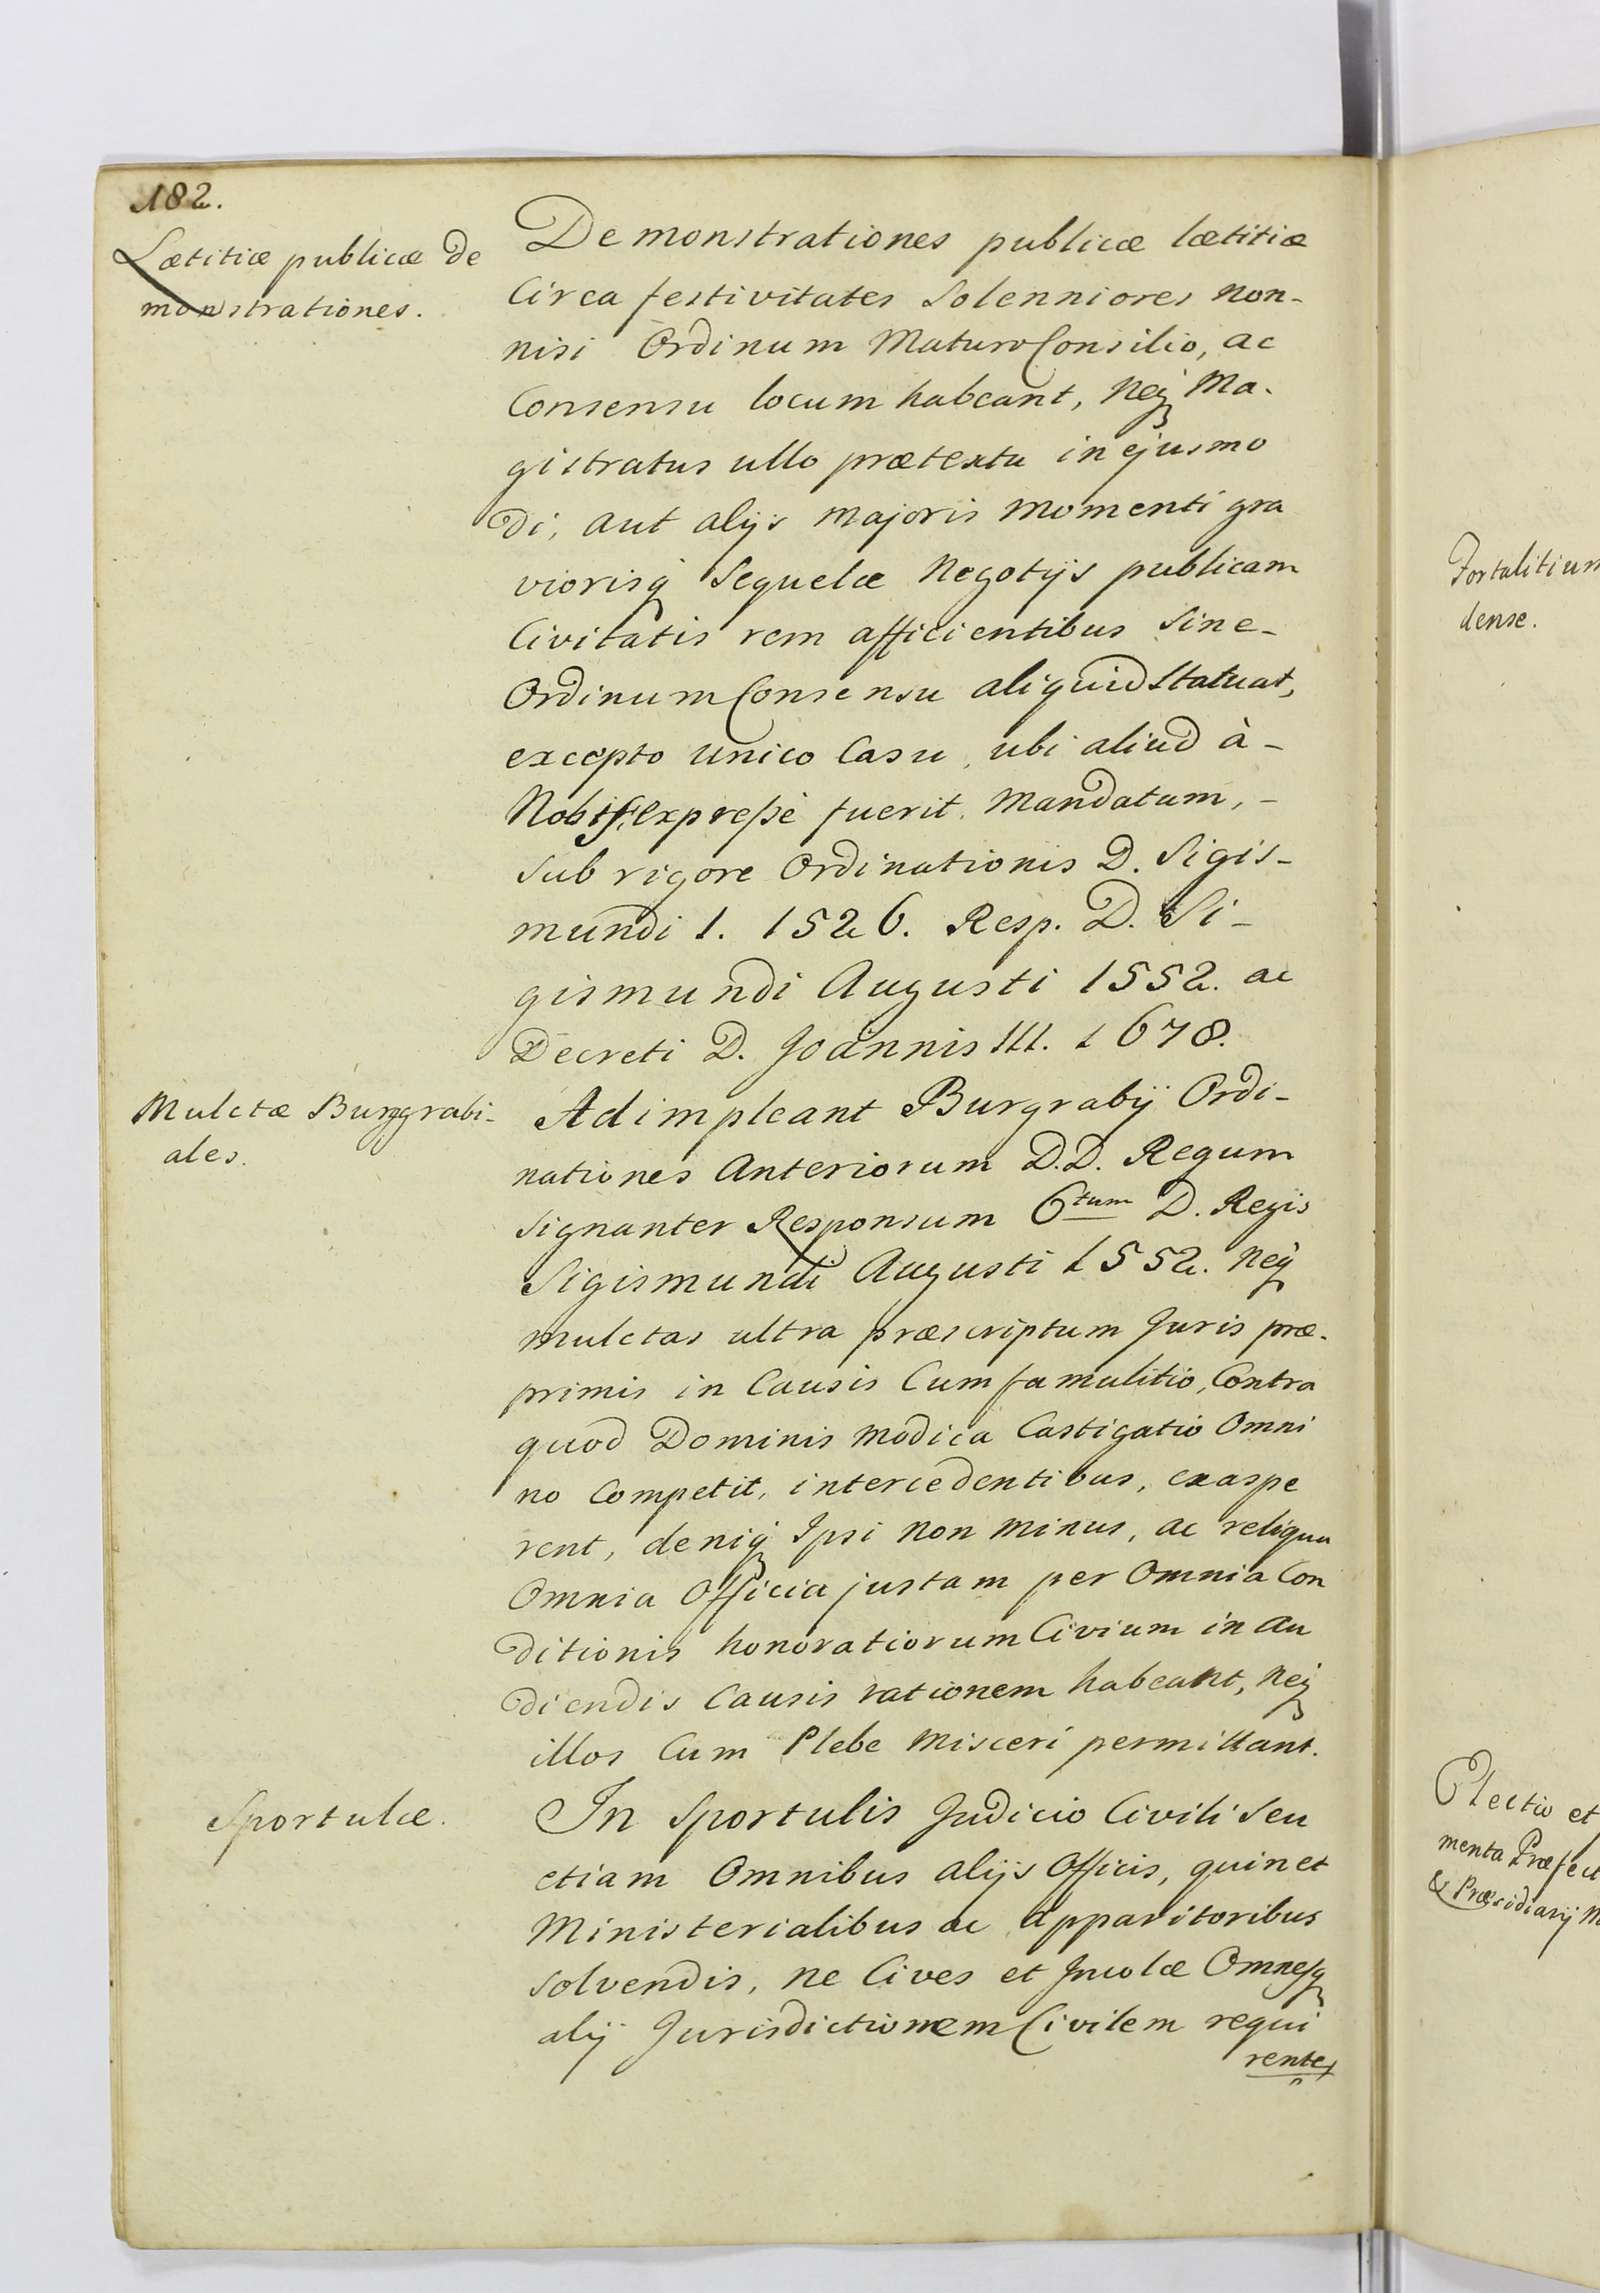 182.
Lætitiæ publicæ De
monstrationes.
Demonstrationes publicæ lætitiæ
Circa festivitates Solenniores non-
nisi Ordinum Maturo Consilio, ac
Consensu locum habeant, Neq Ma-
gistratus ullo prætextu in ejusmo
di, aut alijs Majoris Momenti gra
viorisq Sequelæ Negotijs publicam
Civitatis rem afficientibus Sine-
Ordinum Consensu aliquid Statuat,
excepto unico Casu, ubi aliud à-
Nobis expressè fuerit. Mandatum,-
Sub rigore Ordinationis D. Sigis-
mundi 1. 1526. Resp. D. Si-
gismundi Augusti 1552. ac
Decreti D. Joannis III. 1678.
Mulctæ Burggrabi-
ales.
Adimpleant Burgrabij Ordi-
nationes Anteriorum D.D. Regum
signanter Responsum 6tum D. Regis
Sigismundi Augusti 1552. Neq
mulctas ultra præscriptum Juris præ-
primis in Causis Cum famulitio, Contra
quod Dominis Modica Castigatio Omni
no Competit, intercedentibus, exaspe
rent, deniq Ipsi non minus, ac reliqua
Omnia Officia justam per Omnia Con
ditionis honoratiorum Civium in au
diendis Causis rationem habeant, Neq
illos Cum Plebe Misceri permittant.
Sportulæ.
In Sportulis Judicio Civili Seu
etiam Omnibus alijs Officis, quin et
Ministerialibus ac Apparitoribus
solvendis, ne Cives et Incolæ Omnesq
alij Jurisdictionem Civilem requi
rentes
Fortalitium
dense.
Electio et
menta Præfect
& Præsidiarij